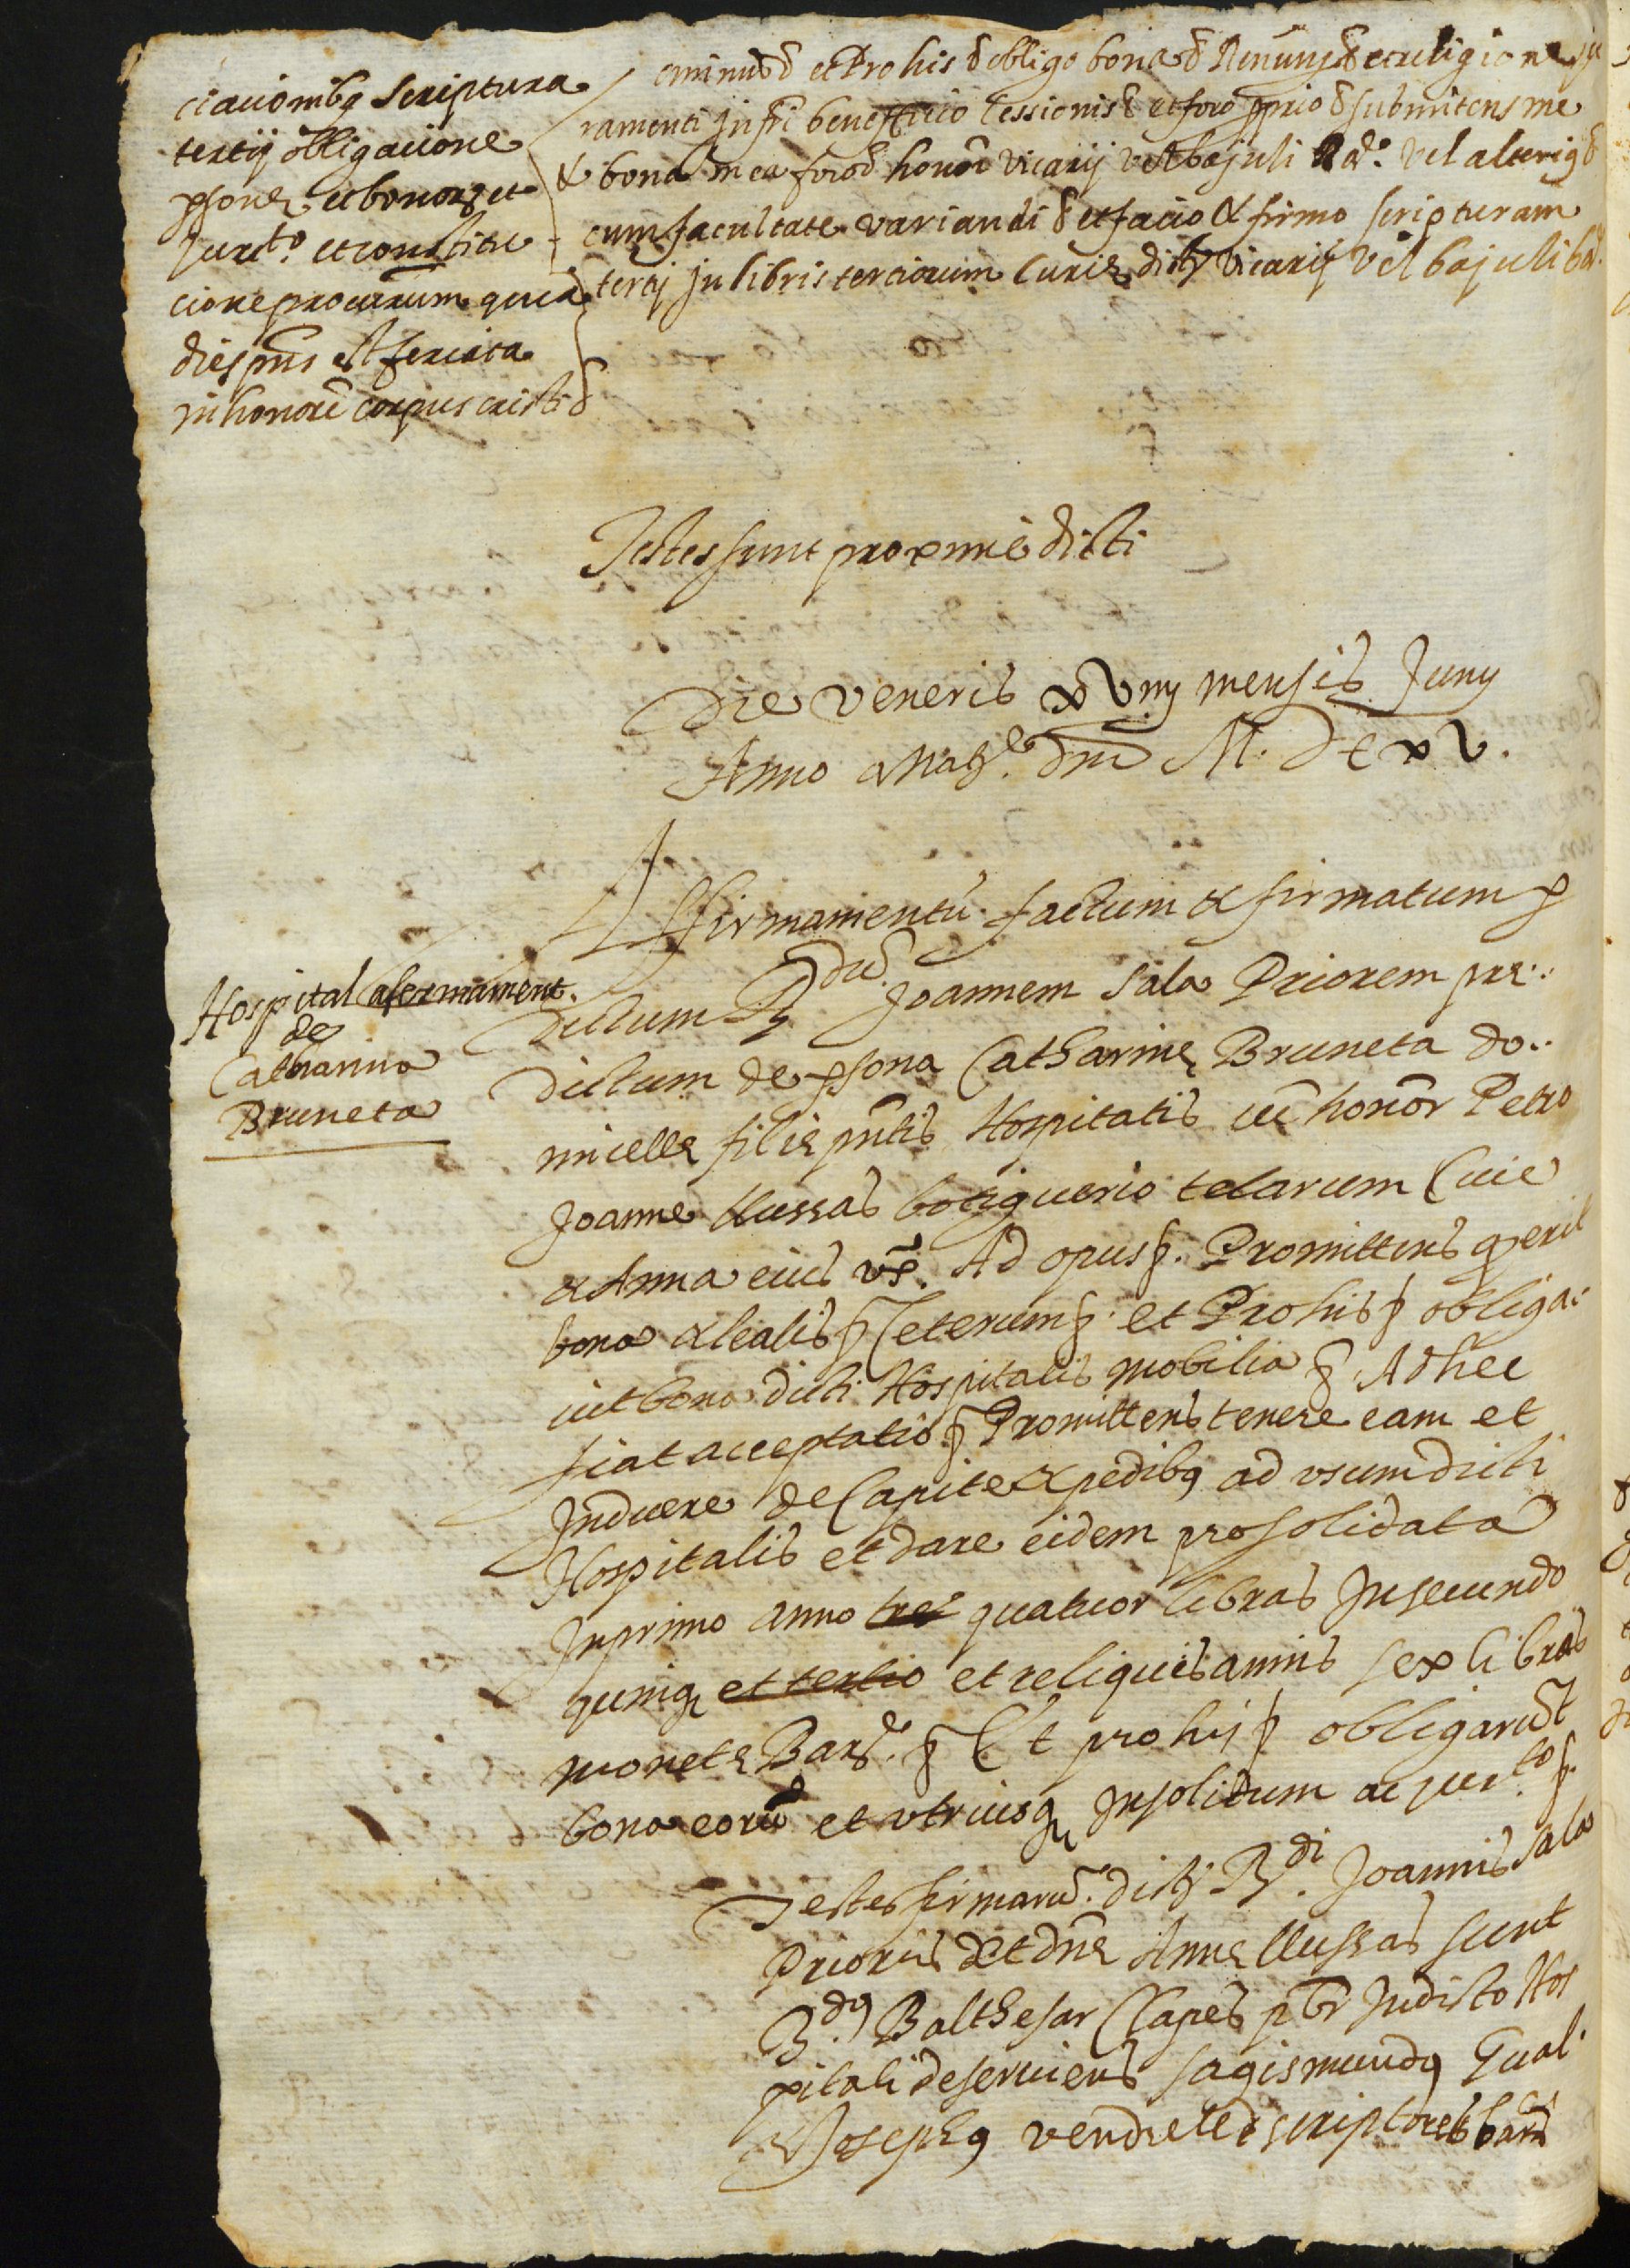 ciacionibq scriptura
tertij obligacione
psone et bonorz et
Jurto. et constitu
cione procurarum quia
dies pns est feriata
in honore corpus cristi
et Pro his obligo bona Renung et religione ju
ramenti beneficio cessionis et foro pprio submitens me
& bona mea foro honor vicarij vel bajuli vel alterig
cum facultate variandi et facio & firmo scripturam
tercij Ju libris terciorum Curie dicti vicarij vel bajuli
Testes sunt proxime dicti
Die veneris xviiij mensis Junij
Anno a Natte. dni M. DC xv.
Hospital afermament.
de
Catharina
Bruneta
Affirmamentu factum & firmatum p
dictum Rdu. Joannem Sala Priorem pre..
dictum de psona Catharine Bruneta do..
micelle filie pntis Hospitalis cu honor Petro
Joanne llussas botiguerio telarum Cive
& Anna eius vx. Ad opus p. Promittens q erit
bona & lealis p Ceterum p. et Pro his p obliga:
vit bona dicti Hospitalis mobilia p Ad hec
fiat acceptatio p Promittens tenere eam et
Induere de Capite & pedibq ad vsum dicti
Hospitalis et dare eidem pro solidata
In primo anno tres quatuor libras In secundo
quinq et tertio et reliquis annis sex libras
monete Barne. p Et pro his p obligarut
bona eoru et vtriusq Insolidum ac Jurto p.
Testes firmaru. dicti Rdi. Joannis Sala
Prioris & et dne Anne llussas sunt
Rdq. Balthesar Clapes pbr In dicto Hos
pitali deserviens Sagismundq Gual
& Josephq vendrell scriptores barne